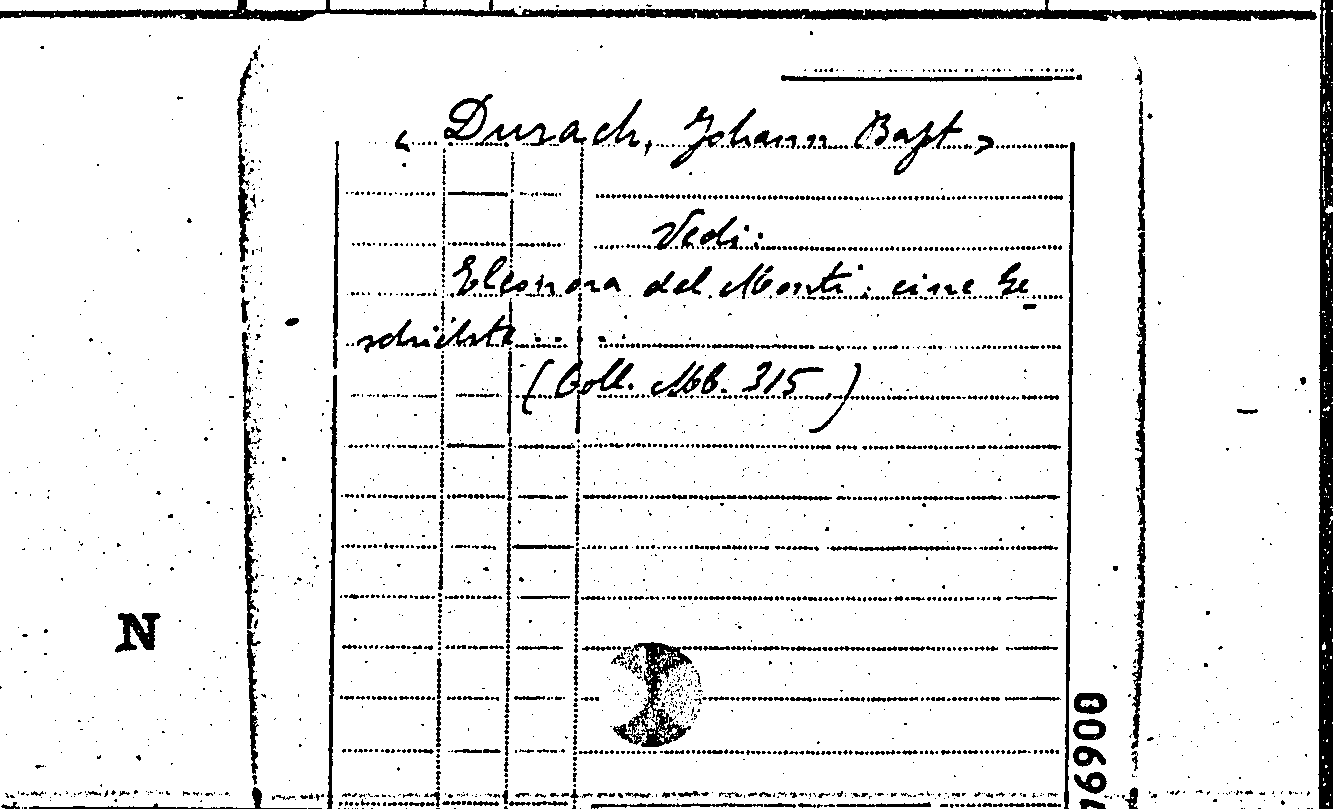 < Durach, Johann Bapt >
Vedi:
Eleonora del Monti: eine Ge
schichte . . . .
(Coll. Mb. 315)
N